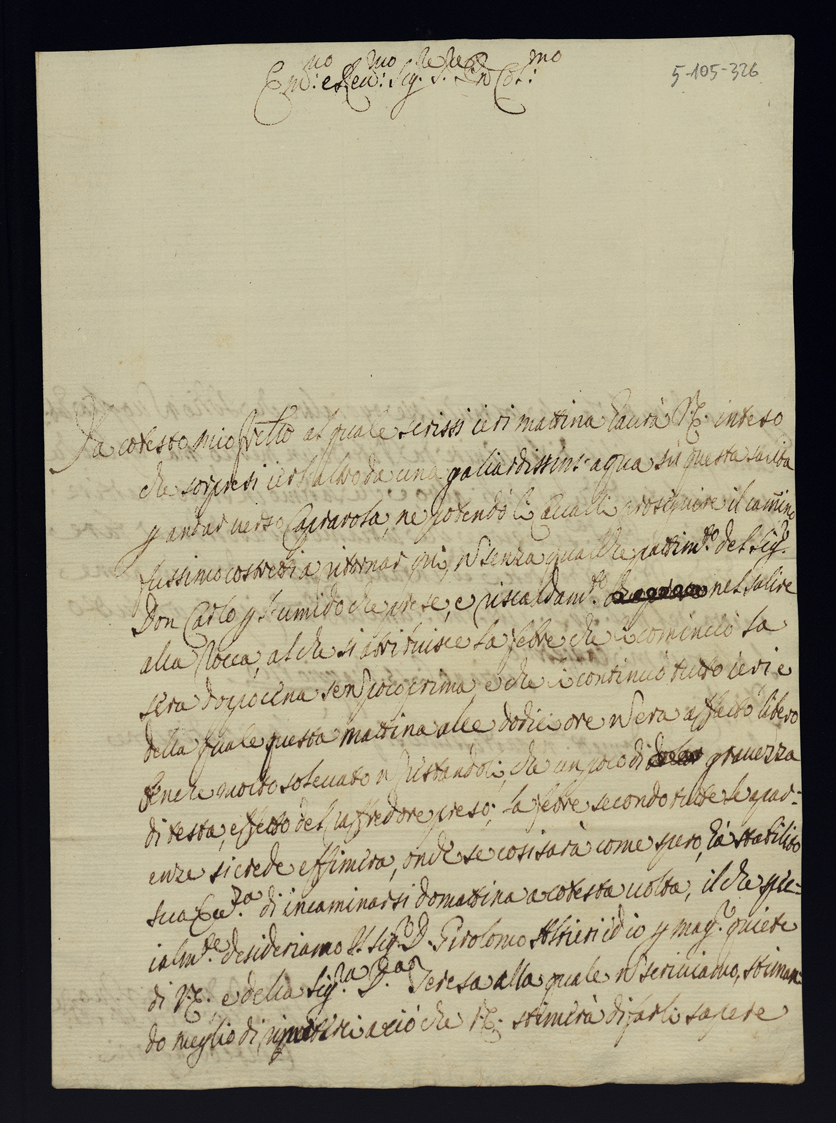 Em:mo e Reu:mo Sig.re P.re Pn Col:mo
5-105-326
Da cotesto mio frello al quale scrissi ieri mattina haurà V.E. inteso
che sorpresi ier l'altro da una galiardissima aqua sù questa salita
p andar verso Caprarola, ne potendo li Cavalli proseguire il camino
fussimo costretti a ritornar qui, nè senza qualche patim.to del Sig.r
Don Carlo p l'umido che prese, e riscaldam.to nel salire
alla Rocca, al che si attribuisce la febre che li cominciò la
sera dopo cena sen poco prima e che li continuò tutto ieri e
della quale questa mattina alle dodici ore n'era affatto libero
bene e molto solevato n restandoli, che un poco di gravezza
di testa, effetto del raffredore preso; la febre secondo tutte le apar-
enze si crede effimera, onde se cosi sarà come spero, hà stabilito
sua Ecc.za di incaminarsi domattina a cotesta volta, il che spe-
ialm.te desideriamo il Sig.r D. Girolomo Altieri ed io p mag.r quiete
di V.E. e della Sig.ra D.a Teresa alla quale n scriviamo, stiman-
do meglio di rimetterci a ciò che V.E. stimerà di farli sapere